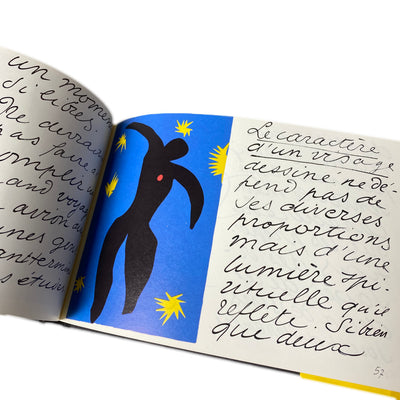 un momen
si libres.
Ne devrai
pas faire a
complir un
and voya
avion au
unes gen
nt termin
s étu
Le caractère
d'un visage
dessiné ne dé-
pend pas de
ses diverses
proportions
mais d'une
lumière spi-
rituelle qu'il
reflète. Si bien
que deux
57